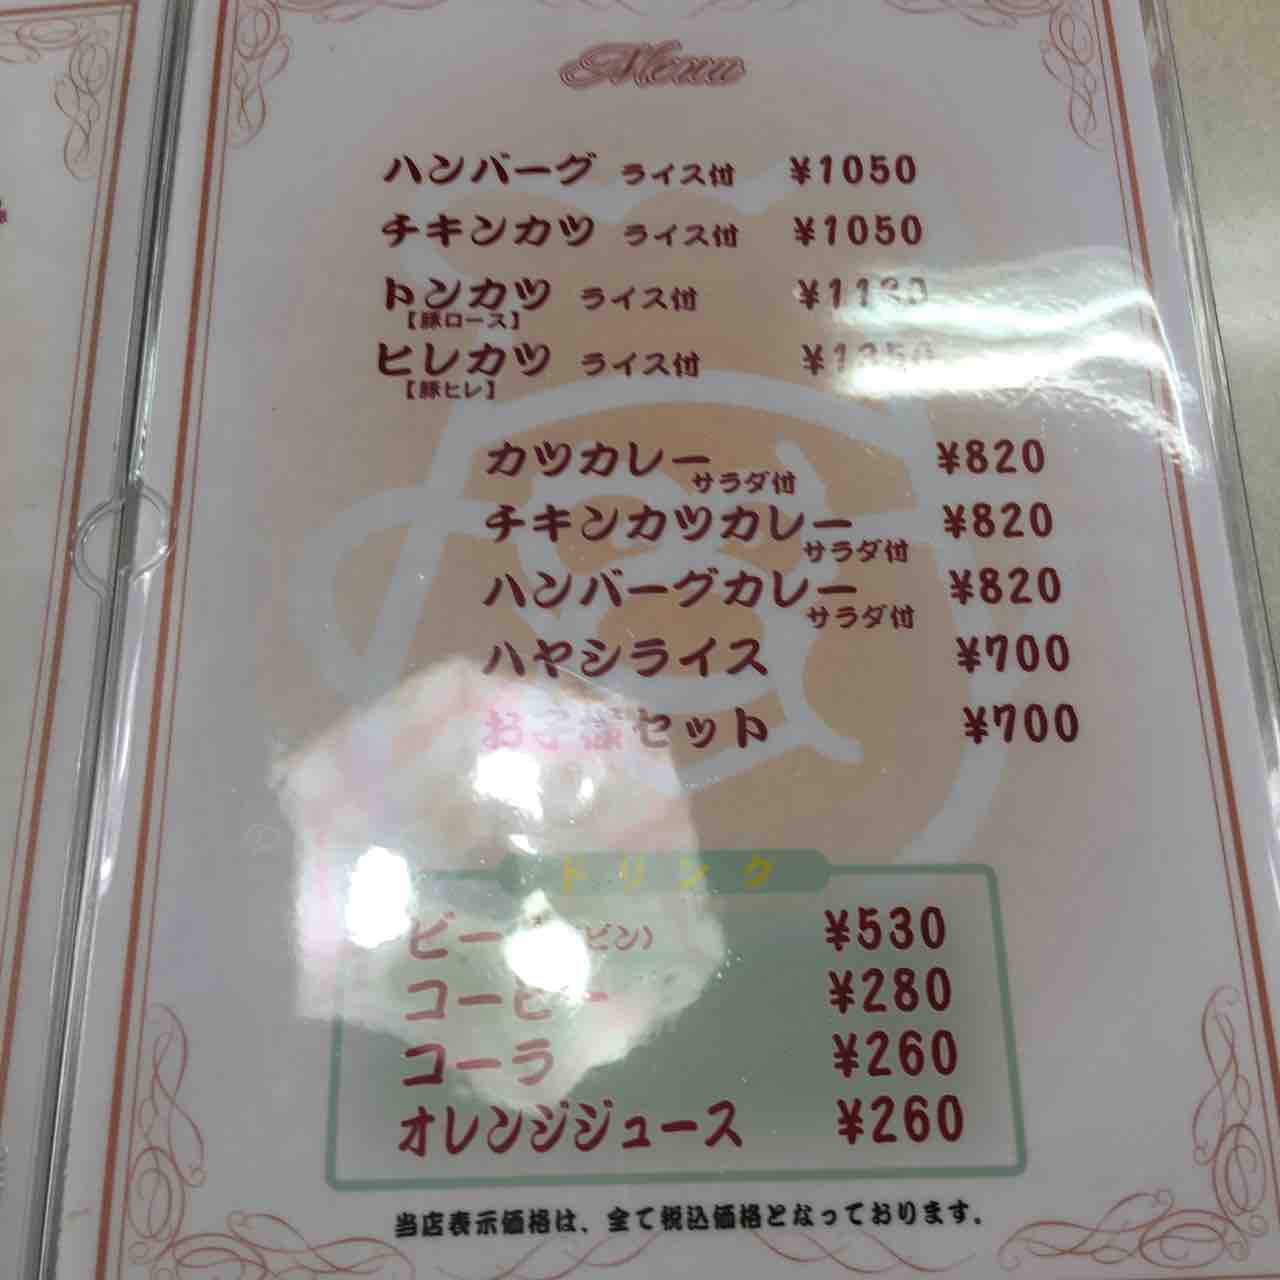 Menu
ハンバーグ ライス付 ¥1050
チキンカツ ライス付 ¥1050
トンカツ ライス付
【豚ロース】
ヒレカツ ライス付
【豚ヒレ】
カツカレー サラダ付 ¥820
チキンカツカレー サラダ付 ¥820
ハンバーグカレー サラダ付 ¥820
ハヤシライス ¥700
お子様セット ¥700
ドリンク
¥530
コーヒー ¥280
コーラ ¥260
オレンジジュース ¥260
当店表示価格は、全て税込価格となっております.